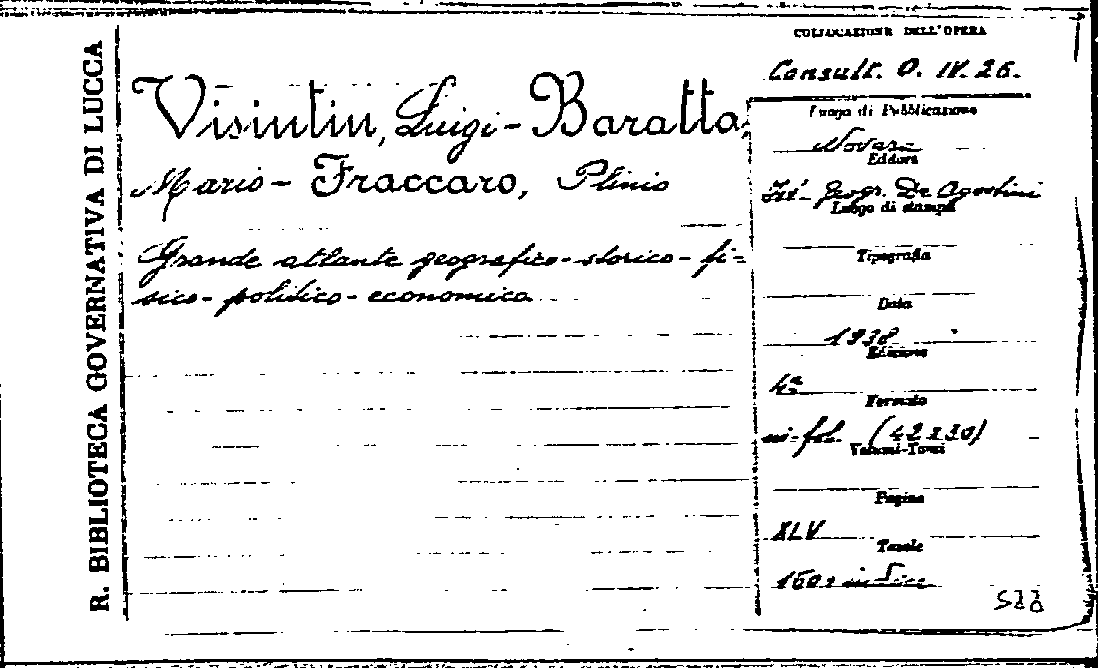 R. BIBLIOTECA GOVERNATIVA DI LUCCA
Visintin, Luigi - Baratta,
Mario - Fraccaro, Plinio
Grande atlante geografico-storico-fi=
sico-politico-economico
COLLOCAZIONE DELL'OPERA
Consult. O. IV. 26.
Luogo di Pubblicazione
Novara
Editore
Ist. Geogr. De Agostini
Luogo di stampa
Tipografia
Data
1938
Edizione
4ª
Formato
in-fol. (42x30)
Volumi-Tomi
Pagine
XLV
Tavole
160 e indice